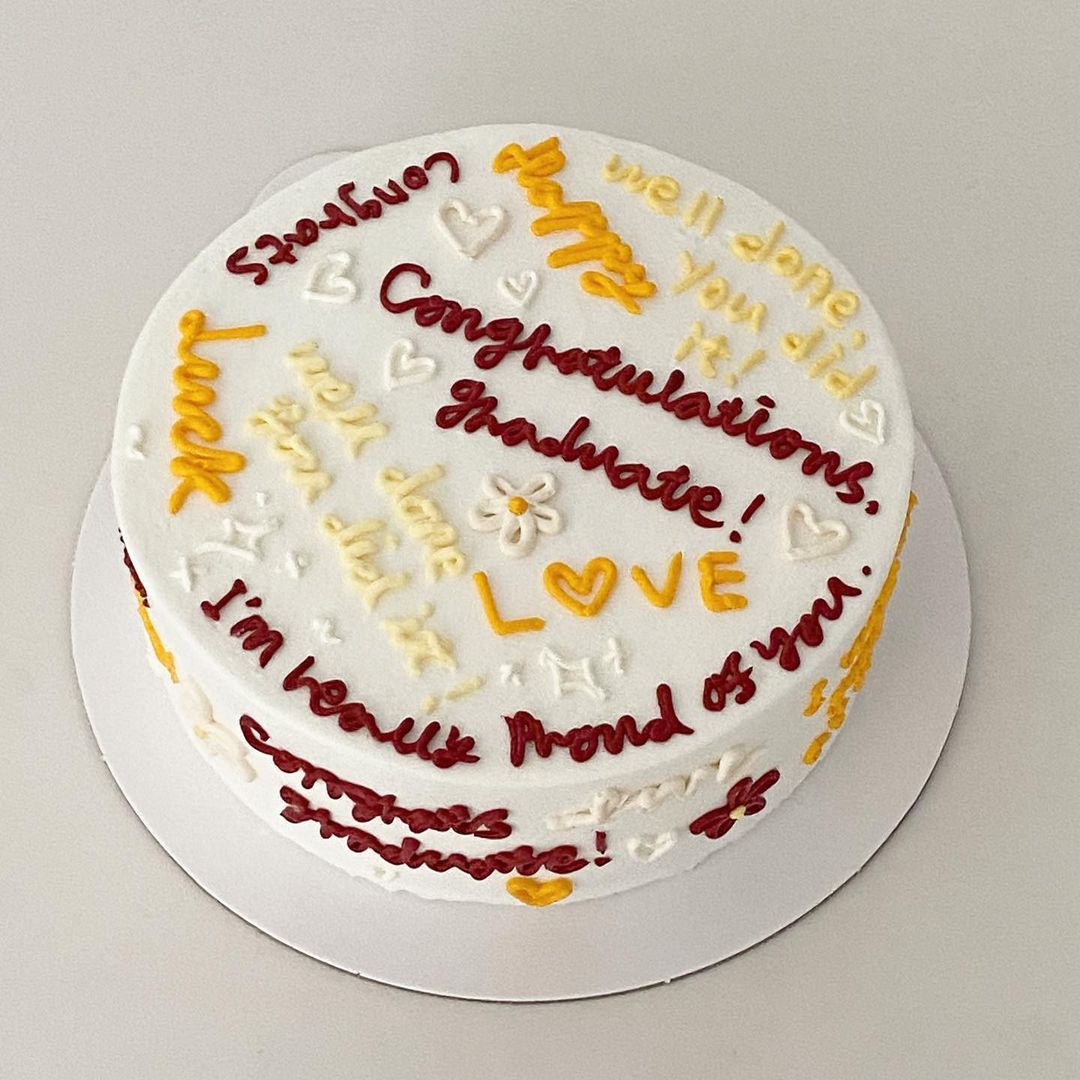 Congrats
Happy
well done.
you did
it!
Congratulations,
graduate!
Luck
well done
you did it!
LOVE
I'm really proud of you.
Congrats
graduate!